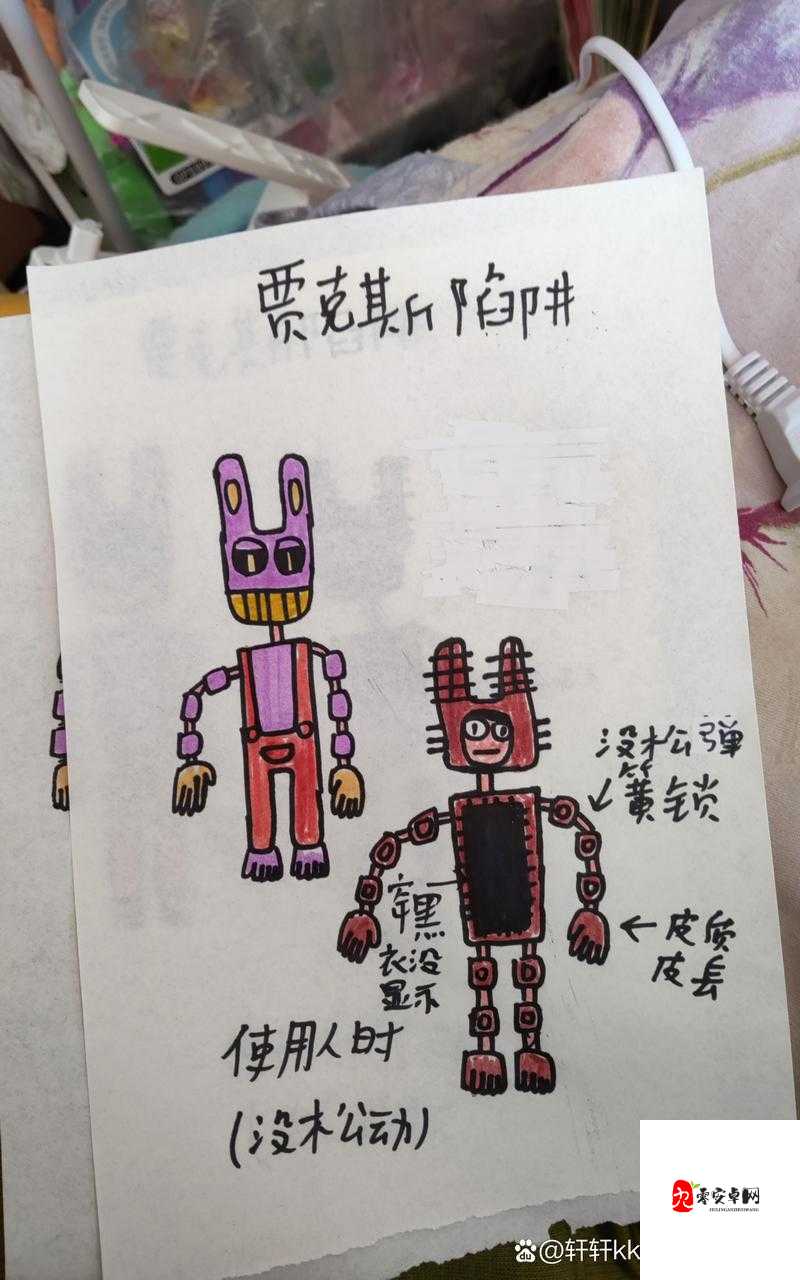 贾克斯陷阱
没松弹
簧锁
穿黑
衣没
显示
← 皮质
皮長
使用人时
(没松动)
九零安卓网
JIULINGANZHUOWANG
Baidu @轩轩kk